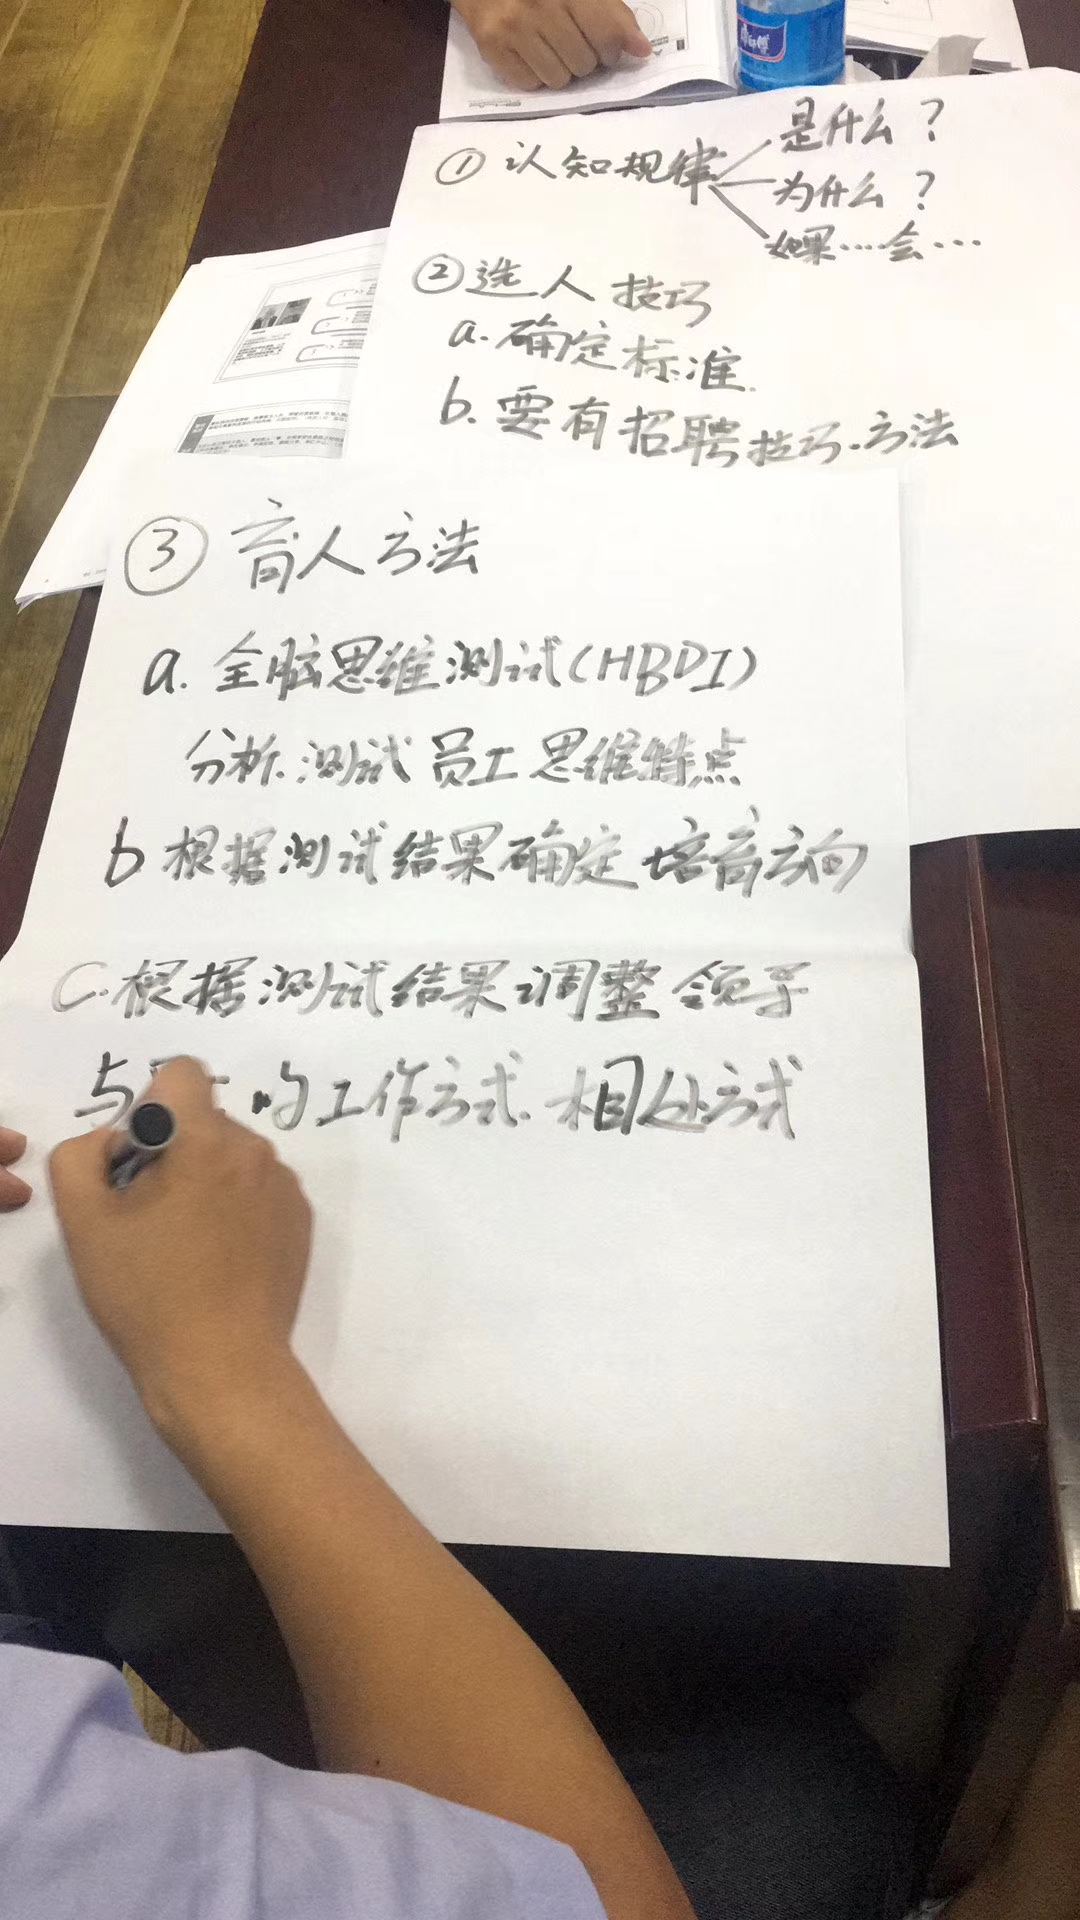 是什么？
① 认知规律
为什么？
如果……会…
② 选人技巧
a. 确定标准.
b. 要有招聘技巧.方法
③ 育人方法
a. 全脑思维测试(HBDI)
分析.测试员工思维特点
b 根据测试结果确定培育方向
C. 根据测试结果调整领导
与 的工作方式.相处方式
康师傅